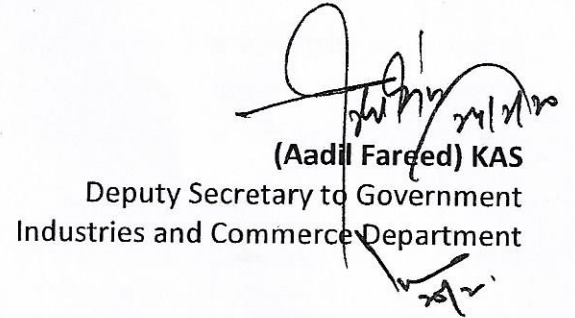 (Aadil Fareed) KAS
Deputy Secretary to Government
Industries and Commerce Department